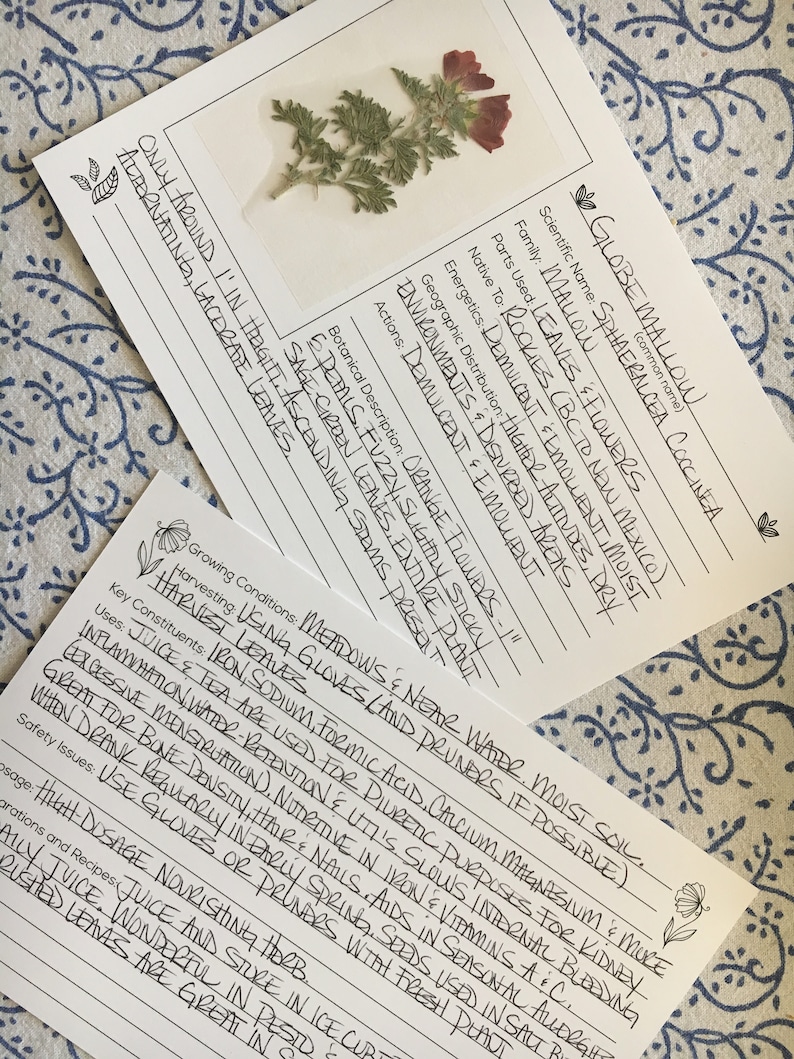 GLOBE MALLOW
(common name)
Scientific Name: SPHAERALCEA COCCINEA
Family: MALLOW
Parts Used: LEAVES & FLOWERS
Native To: ROCKIES (BC TO NEW MEXICO)
Energetics: DEMULCENT & EMOLLIENT MOIST
Geographic Distribution: HIGHER ALTITUDES, DRY
ENVIRONMENTS & DISTURBED AREAS
Actions: DEMULCENT & EMOLLIENT
Botanical Description: ORANGE FLOWERS - 1"
5 PETALS. FUZZY, SLIGHTLY STICKY
SAGE-GREEN LEAVES. ENTIRE PLANT
ONLY AROUND 1' IN HEIGHT. ASCENDING STEMS PRESENT
ALTERNATING, LACERATE LEAVES.
Growing Conditions: MEADOWS & NEAR WATER. MOIST SOIL.
Harvesting: USING GLOVES (AND PRUNERS IF POSSIBLE)
HARVEST LEAVES
Key Constituents: IRON, SODIUM, FORMIC ACID, CALCIUM, MAGNESIUM & MORE
Uses: JUICE & TEA ARE USED FOR DIURETIC PURPOSES FOR KIDNEY
INFLAMMATION, WATER-RETENTION & UTI'S. SLOWS INTERNAL BLEEDING
(EXCESSIVE MENSTRUATION). NUTRITIVE IN IRON & VITAMINS A & C.
GREAT FOR BONE-DENSITY, HAIR & NAILS. AIDS IN SEASONAL ALLERGIES
WHEN DRANK REGULARLY IN EARLY SPRING. SEEDS USED IN SALT
Safety Issues: USE GLOVES OR PRUNERS WITH FRESH PLANT
osage: HIGH-DOSAGE NOURISHING HERB
arations and Recipes: JUICE AND STORE IN ICE CUBE
AILY JUICE. WONDERFUL IN PESTO &
LEAVES ARE GREAT IN